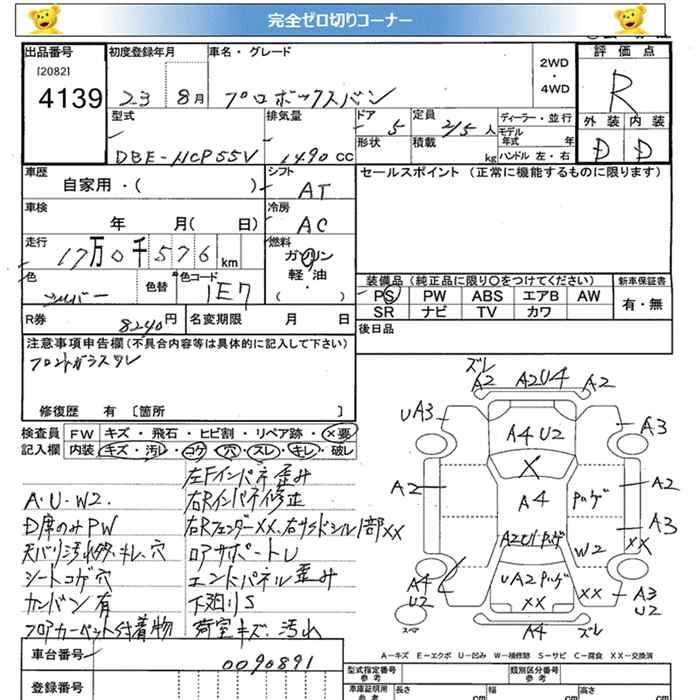 完全ゼロ切りコーナー
出品番号 初度登録年月 車名・グレード 評価点
[2082]
4139 23 8月 プロボックスバン 2WD・4WD R
型式 排気量 ドア 定員 ディーラー・並行 外装 内装
DBE-NCP55V 1490cc 5 2/5人 モデル年式 年 D D
形状 積載 kg ハンドル 左・右
車歴 シフト セールスポイント (正常に機能するものに限ります)
自家用・( ) AT
車検 冷房
年 月( 日) AC
走行 燃料
17万0千576km ガソリン
軽・油
( )
色 色替 色コード 装備品(純正品に限り○をつけてください) 新車保証書
シルバー 1E7 PS PW ABS エアB AW 有・無
SR ナビ TV カワ
R券 8240円 名変期限 月 日 後日品
注意事項申告欄(不具合内容等は具体的に記入して下さい)
フロントガラスワレ
修復歴 有 〔箇所 〕
検査員 FW キズ・飛石・ヒビ割・リペア跡・×要
記入欄 内装 キズ・汚レ・コゲ・穴・スレ・キレ・破レ
左Fインパネ歪み
A・U・W2. 右Rインパネ修正
D席のみPW 右RフェンダーXX、右サイドシル1部XX
天バリ汚レ、キレ、穴 ロアサポートU
シートコゲ穴 エンドパネル歪み
カンバン有 下廻りS
フロアカーペット付着物 荷室キズ、汚れ
ズレ
A2 A2U4 A2
UA3 A3
A4U2
X
A2 A4 ハゲ A2
A3
A2U1ハゲ W2 XX
A4 U2 UA2ハゲ XX XX A3 U2
スペア A4 ズレ
A-キズ E-エクボ U-凹み W-補修跡 S-サビ C-腐食 XX-交換済
車台番号 0090891
登録番号
型式指定番号 参考 類別区分番号 参考
車庫証明用 参考 長さ cm 幅 cm 高さ cm